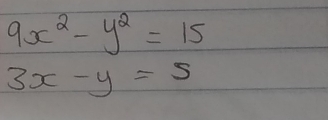 9x² - y² = 15
3x - y = 5